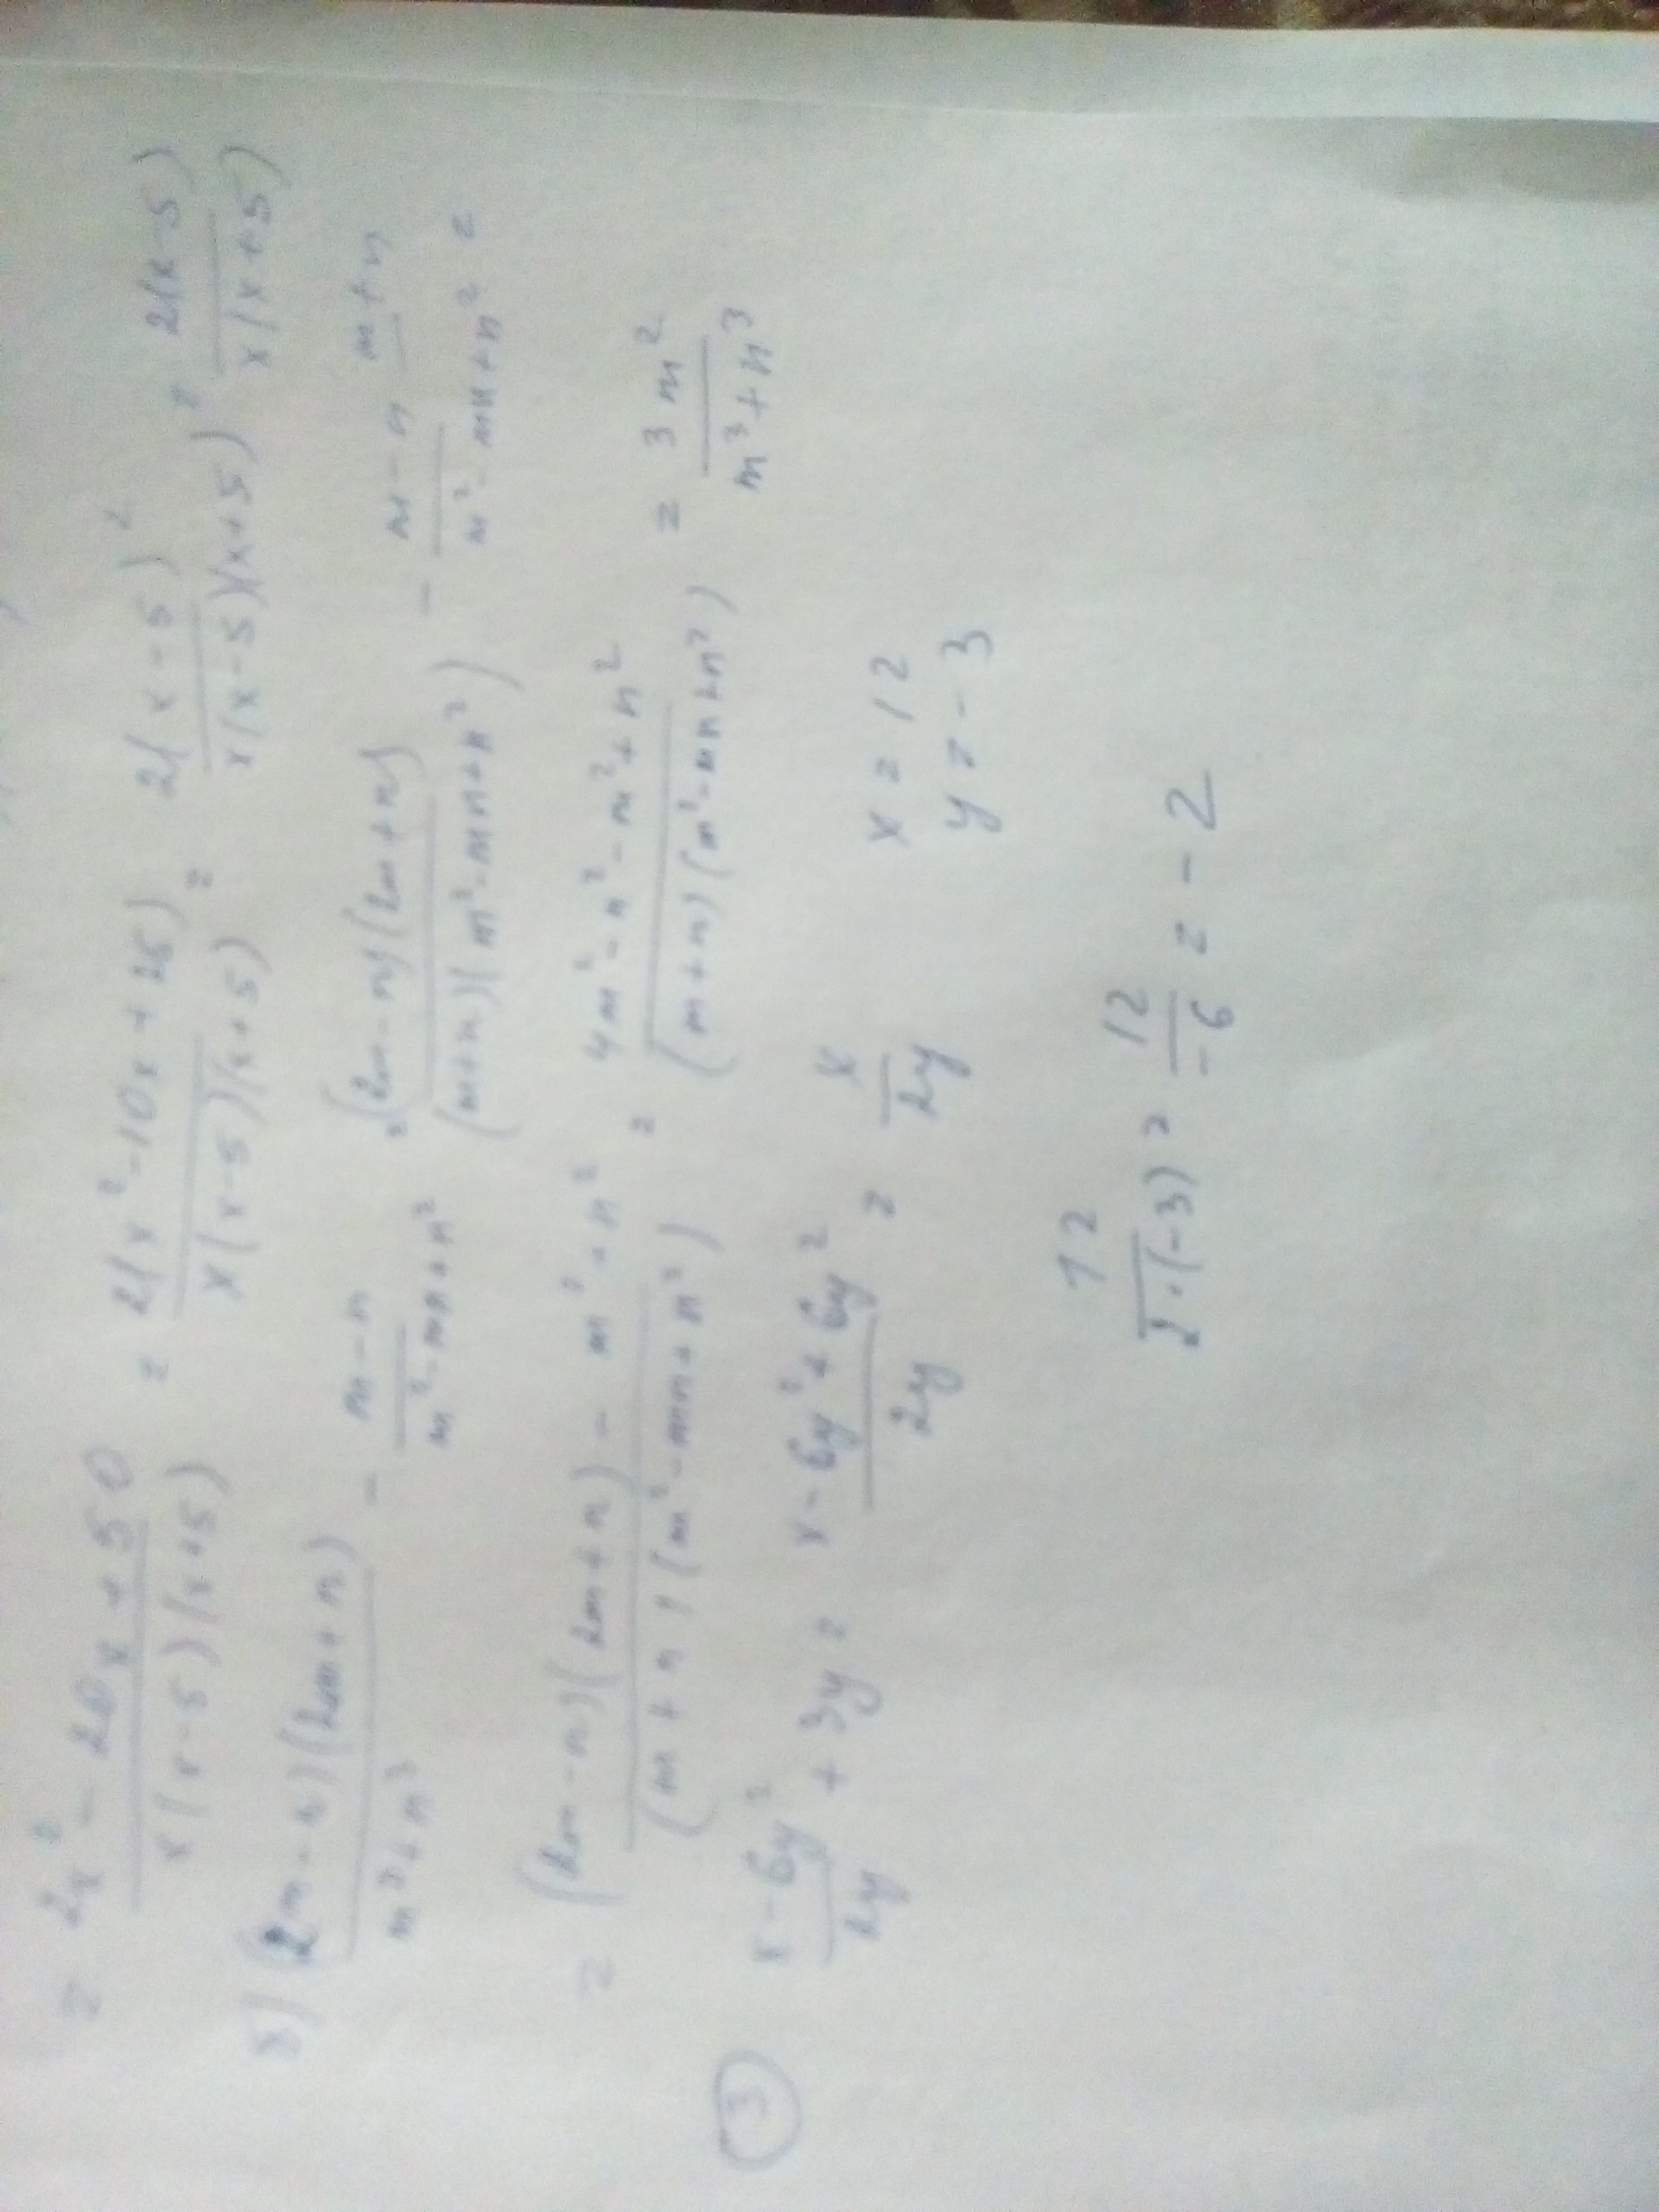 = 2x² - 20x + 50 / x(x-5)(x+5) = 2(x² - 10x + 25) / x(x-5)(x+5) = 2(x-5)² / x(x-5)(x+5) = 2(x-5) / x(x+5)
(2m-n)(2m+n) / m³+n³ - m-n / m²-mn+n² = (2m-n)(2m+n) / (m+n)(m²-mn+n²) - m-n / m²-mn+n² m+n =
= (2m-n)(2m+n) - m²+n² / (m+n)(m²-mn+n²) = 4m²-n²-m²+n² / (m+n)(m²-mn+n²) = 3m² / m³+n³
3 x-6y² / 2y + 3y = x-6y²+6y² / 2y = x / 2y x = 12
y = -3
12 / 2·(-3) = 12 / -6 = -2